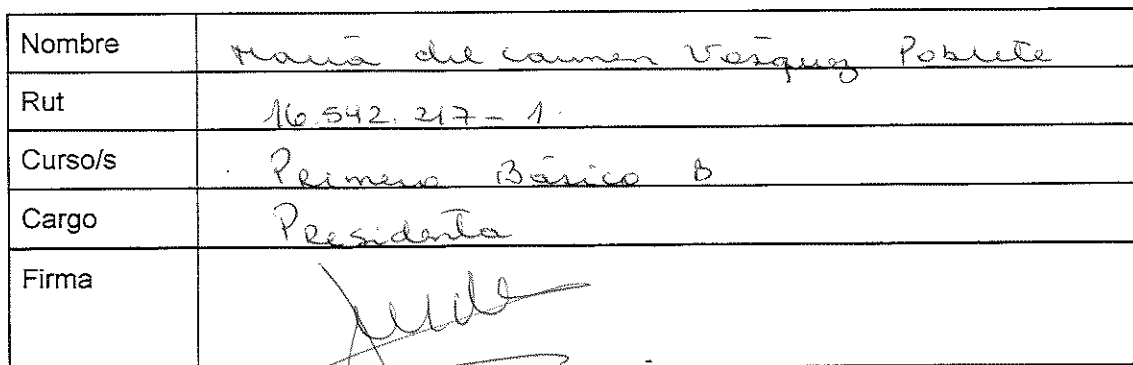 Nombre María del carmen Vásquez Poblete
Rut 16.542.217-1.
Curso/s Primero Básico B
Cargo Presidenta
Firma